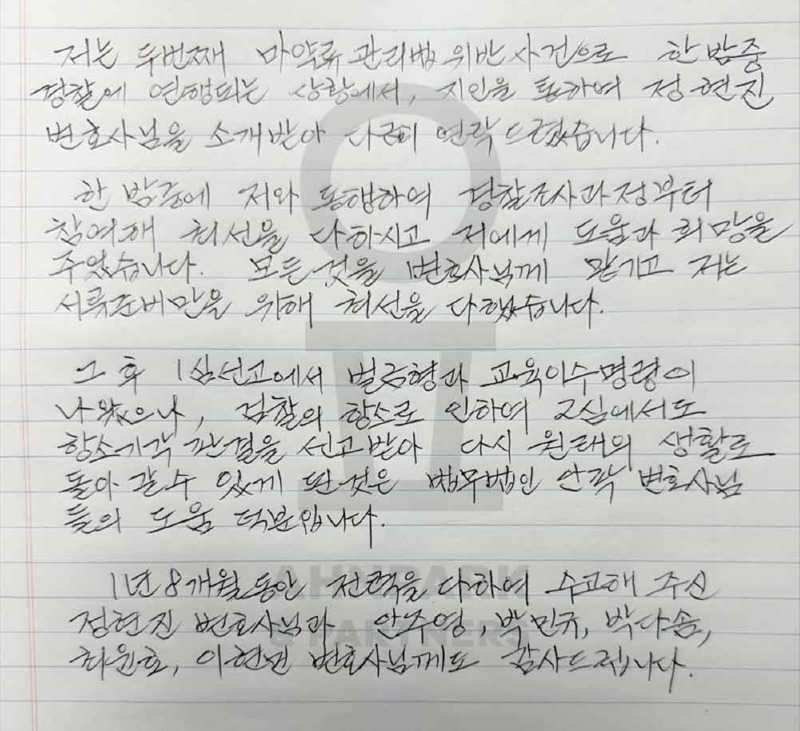 저는 두번째 마약류 관리법 위반 사건으로 한 밤중
경찰에 연행되는 상황에서, 지인을 통하여 정현진
변호사님을 소개받아 다급히 연락드렸습니다.
한 밤중에 저와 동행하여 경찰조사과정부터
참여해 최선을 다하시고 저에게 도움과 희망을
주었습니다. 모든것을 변호사님께 맡기고 저는
서류준비만을 위해 최선을 다했습니다.
그 후 1심선고에서 벌금형과 교육이수명령이
나왔으나, 검찰의 항소로 인하여 2심에서도
항소기각 판결을 선고받아 다시 원래의 생활로
돌아 갈수 있게 된것은 법무법인 안팍 변호사님
들의 도움 덕분입니다.
1년 8개월 동안 전력을 다하여 수고해 주신
정현진 변호사님과 안주영, 박민규, 박다솜,
최원호, 이현권 변호사님께도 감사드립니다.
AHNPARK
& PARTNERS